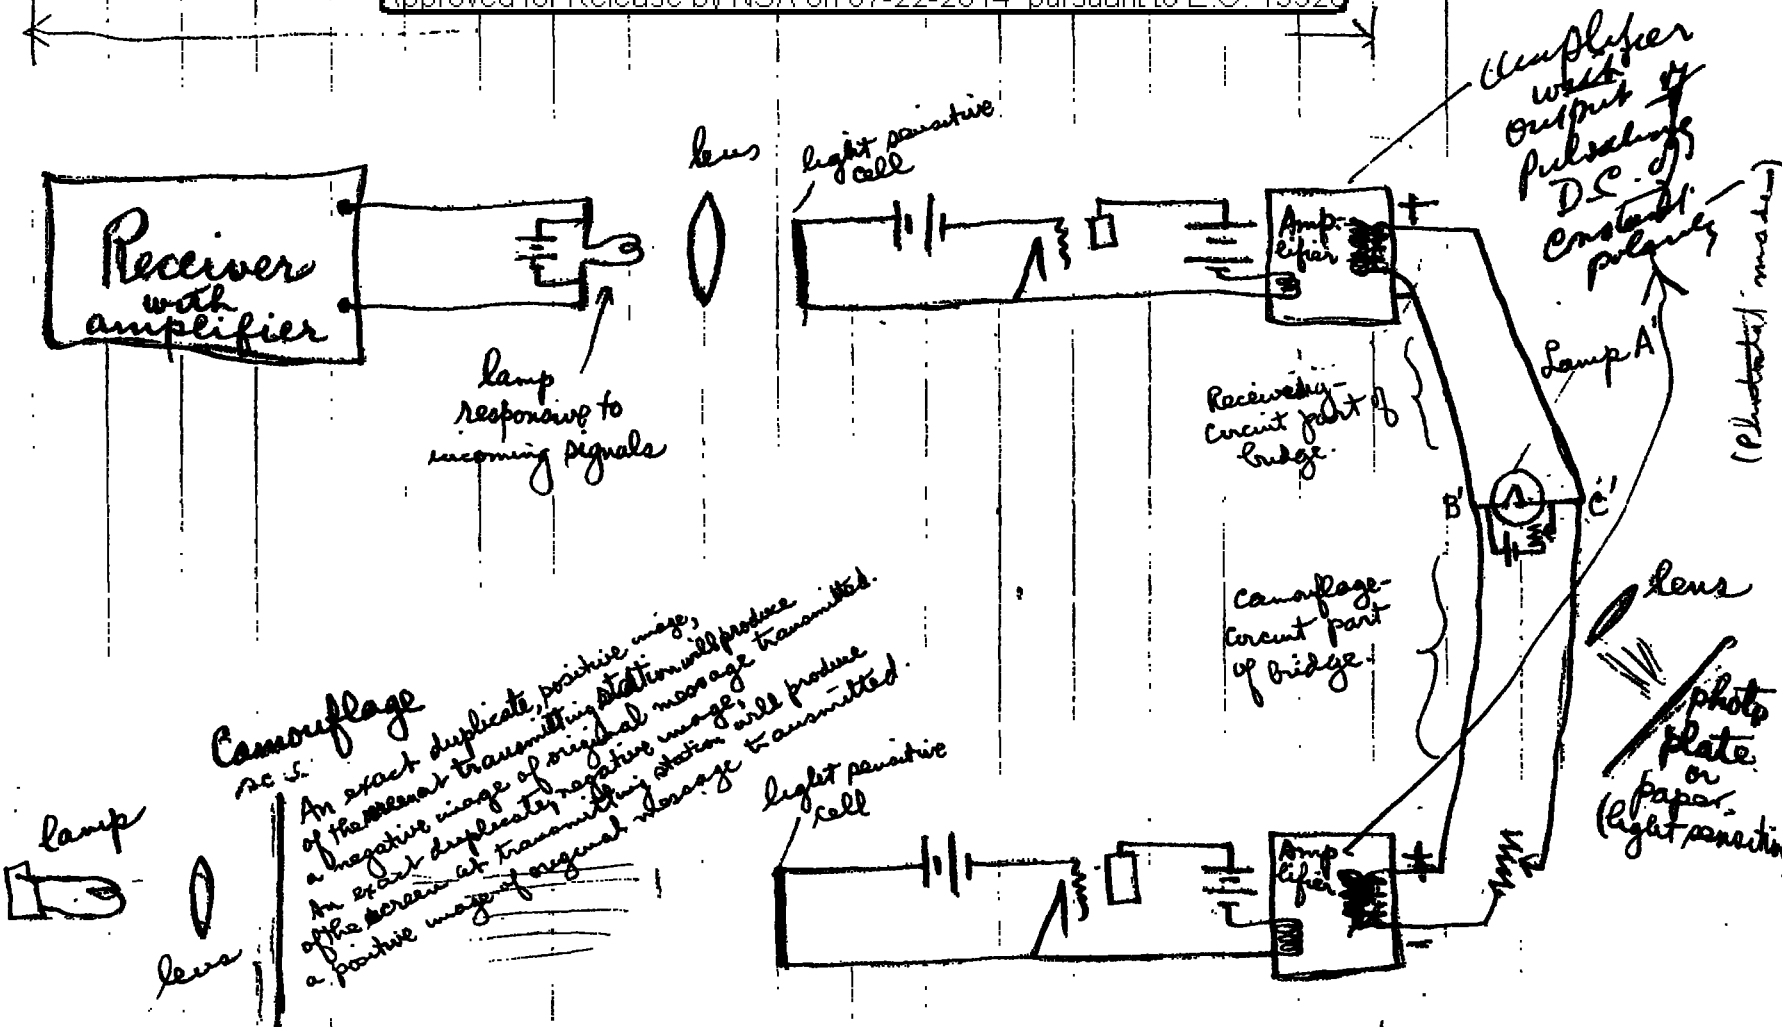 Approved for Release by NSA on 07-22-2014 pursuant to E.O. 13526
Amplifier
with
output of
Pulsating
D.C. of
Constant
polarity
lens
light sensitive
cell
Receiver
with
amplifier
Amp-
lifier
+
-
lamp
responsive to
incoming signals
Lamp A'
Receiving-
circuit part of
bridge.
B'
C'
Camouflage-
circuit part
of bridge.
lens
photo
plate
or
paper.
(light sensitive
Camouflage
An exact duplicate, positive image,
of the screen at transmitting station will produce
a negative image of original message transmitted.
An exact duplicate, negative image,
of the screen at transmitting station will produce
a positive image of original message transmitted.
lamp
lens
light sensitive
cell
Amp-
lifier
+
-